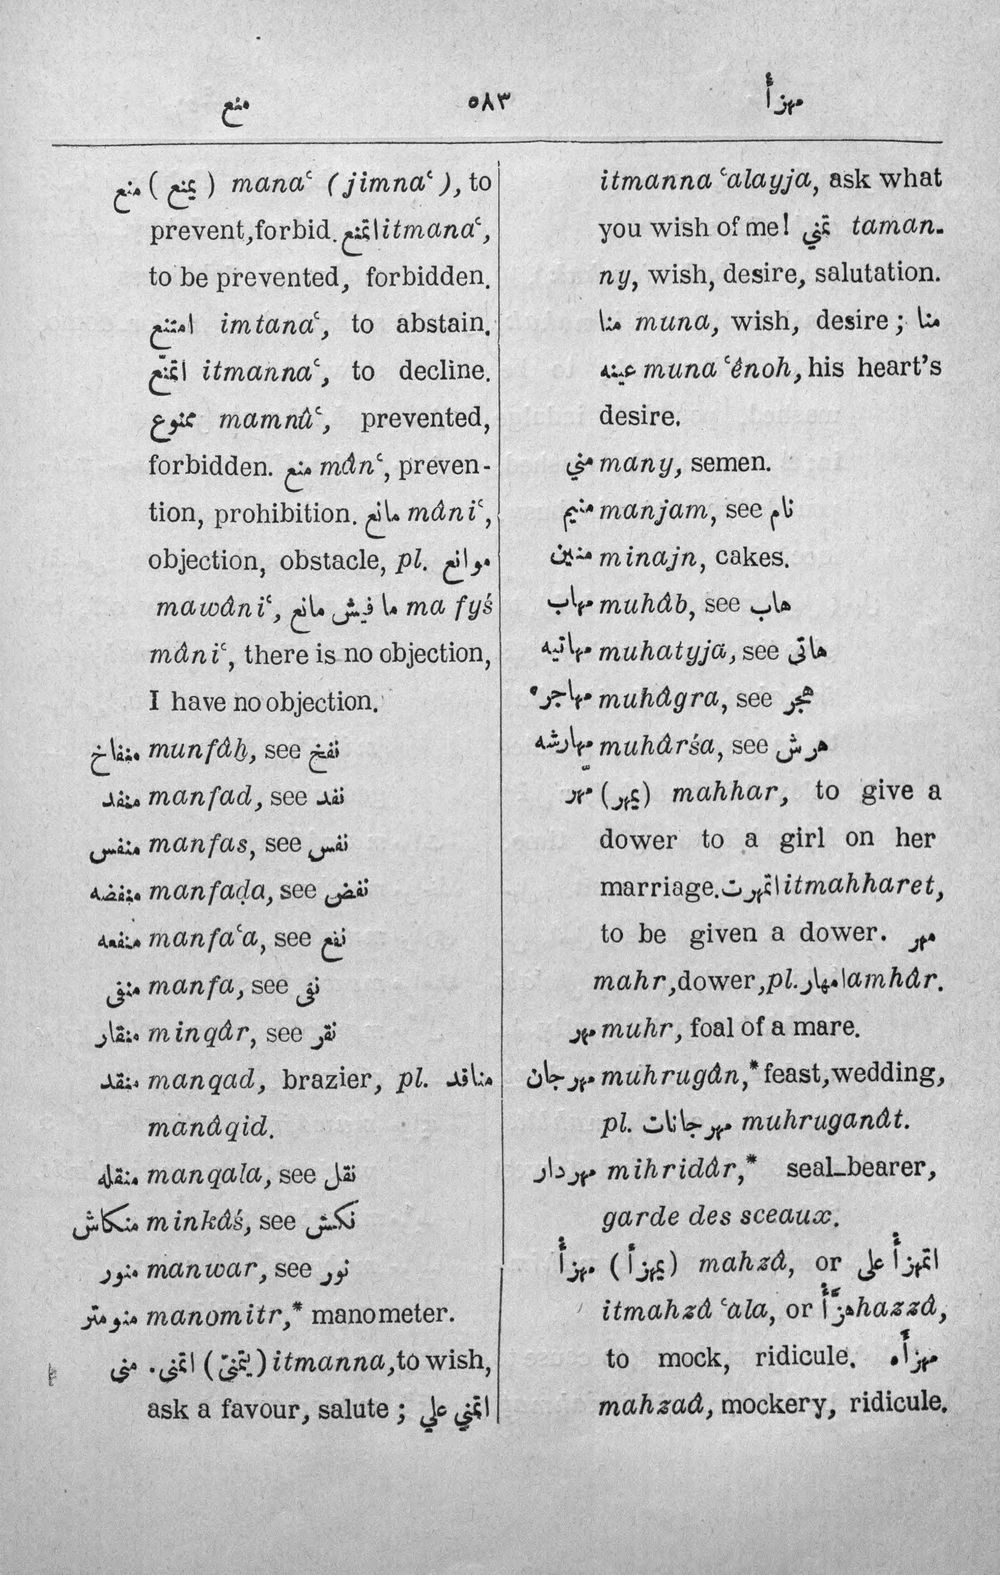 منع ٥٨٣ مهزأ
منع (يمنع) manaʿ (jimnaʿ), to
prevent, forbid. اتمنع itmanaʿ,
to be prevented, forbidden.
امتنع imtanaʿ, to abstain.
اتمنّع itmannaʿ, to decline.
ممنوع mamnûʿ, prevented,
forbidden. منع mânʿ, preven-
tion, prohibition. مانع mâniʿ,
objection, obstacle, pl. موانع
mawâniʿ, ما فيش مانع ma fyś
mâniʿ, there is no objection,
I have no objection.
منفاخ munfâḫ, see نفخ
منفد manfad, see نفد
منفس manfas, see نفس
منفضه manfaḍa, see نفض
منفعه manfaʿa, see نفع
منفى manfa, see نفى
منقار minqâr, see نقر
منقد manqad, brazier, pl. مناقد
manâqid.
منقله manqala, see نقل
منكاش minkâś, see نكش
منور manwar, see نور
منومتر manomitr,* manometer.
منى . اتمنى (يتمنّى) itmanna, to wish,
ask a favour, salute ; اتمني علي
itmanna ʿalayja, ask what
you wish of me! تمني taman-
ny, wish, desire, salutation.
منا muna, wish, desire ; منا
عينه muna ʿênoh, his heart's
desire.
مني many, semen.
منيم manjam, see نام
منين minajn, cakes.
مهاب muhâb, see هاب
مهاتيه muhatyja, see هاتى
مهاجره muhâgra, see هجر
مهارشه muhârśa, see هرش
مهّر (يمهر) mahhar, to give a
dower to a girl on her
marriage. اتمهرت itmahharet,
to be given a dower. مهر
mahr, dower, pl. امهار amhâr.
مهر muhr, foal of a mare.
مهرجان muhrugân,* feast, wedding,
pl. مهرجانات muhruganât.
مهردار mihridâr,* seal-bearer,
garde des sceaux.
مهزأ (يمهزأ) mahzâ, or اتمهزأ على
itmahzâ ʿala, or هزّأ hazzâ,
to mock, ridicule. مهزأه
mahzaâ, mockery, ridicule.